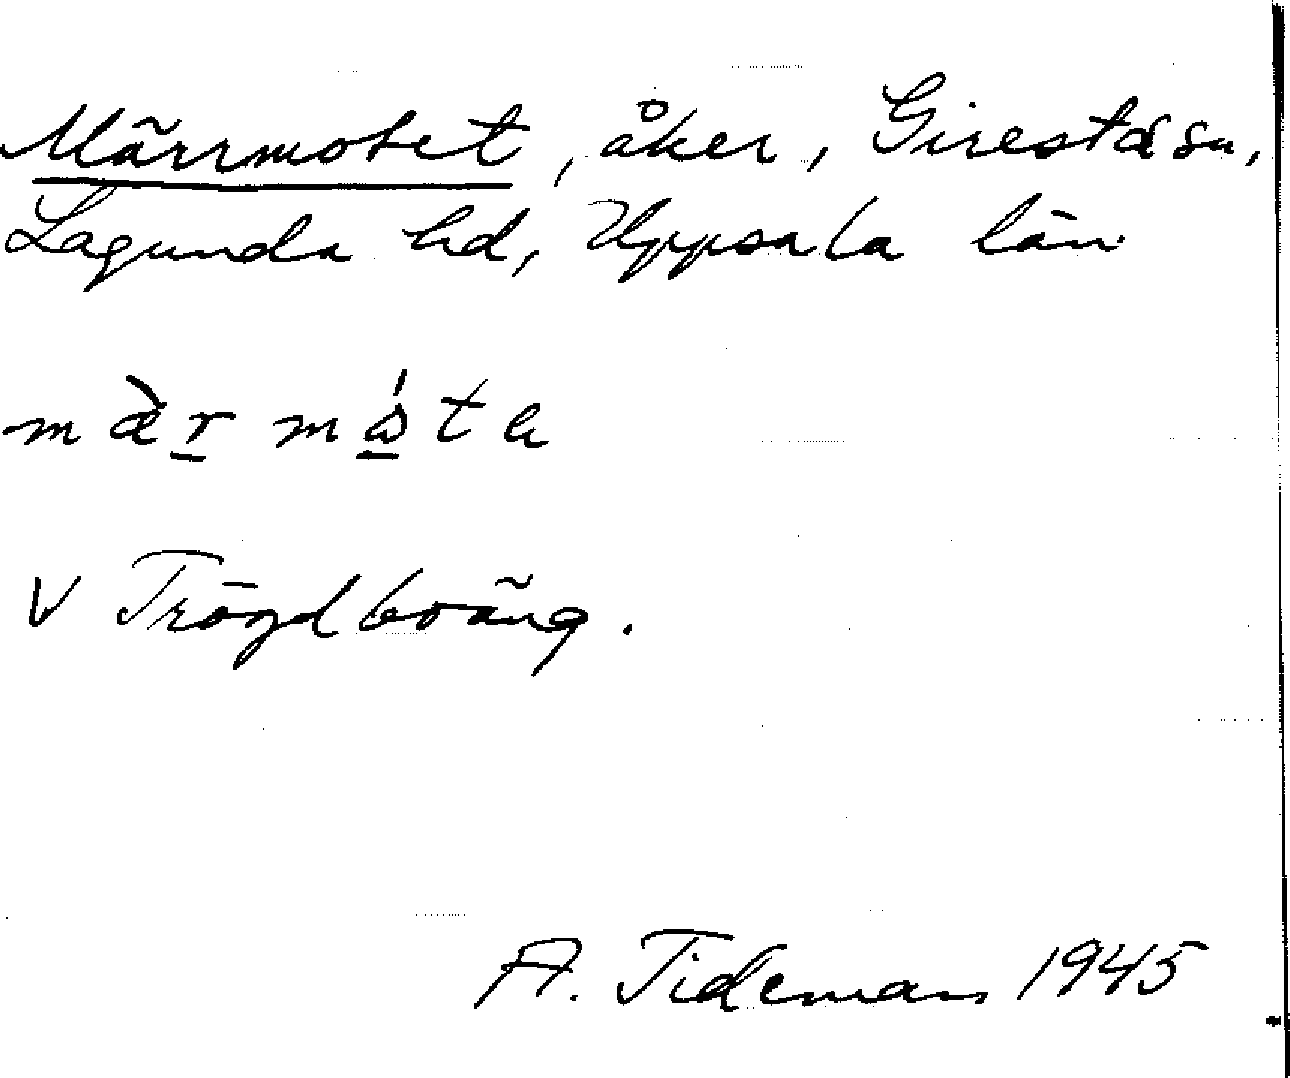 Märrmotet, åker, Giresta sn,
Lagunda hd, Uppsala län
V Trögdboäng.
A. Tideman 1945